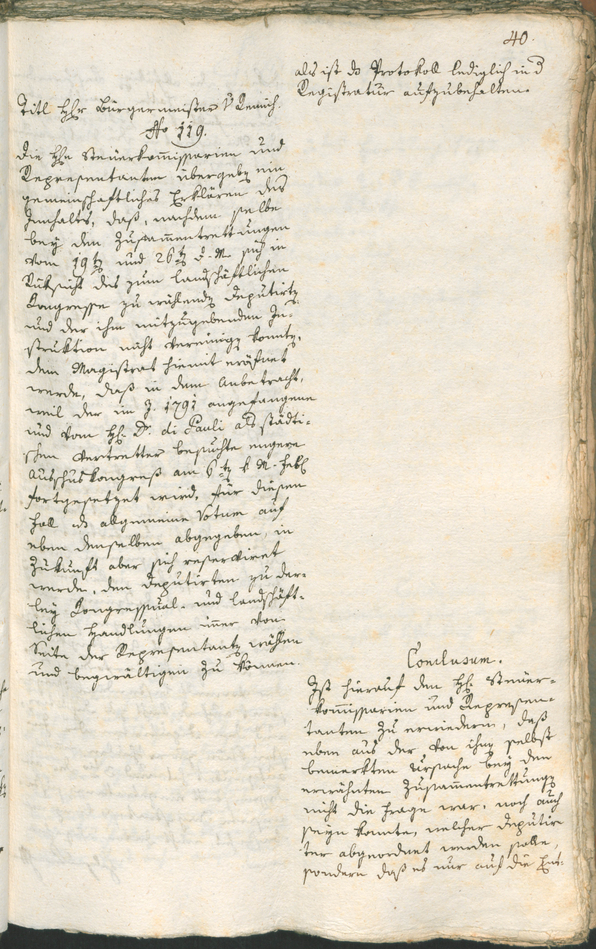 40.
als ist das Protokoll lediglich in d
Registratur aufzubehalten.
Titl Hhr Bürgermeister v Remich.
No 119.
Die Hhn Steuerkommissarien und
Representanten übergeben ein
gemeinschaftliches Erklären des
Innhalts, daß, nachdem selbe
bey den Zusammentrettungen
vom 19ten und 26ten d. M. sich in
Rüksicht des zum landschäftlichen
Kongresse zu wählenden Deputirten
und der ihm mitzugebenden In-
struktion nicht vereinigen konnten,
dem Magistrat hiemit eröfnet
werde, daß in dem Anbetracht,
weil der im J. 1791 angefangene
und vom Hh. Dr. di Pauli als städti-
schen Vertretter besuchte engere
Ausschuskongreß am 6ten k. M. Febr
fortgesetzet wird, für diesen
Fall das allgemeine Votum auf
eben denselben abgegeben, in
Zukunft aber sich reserviret
werde, den Deputirten zu der-
ley Kongressual- und landschäft-
lichen Handlungen immer von
Seite der Representanten wählen
und begwältigen zu können.
Conclusum.
Ist hierauf den Hh. Steuer-
kommissarien und Represen-
tanten zu erwiedern, daß
eben aus der von ihnen selbst
bemerkten Ursache bey den
erwähnten Zusammentrettungen
nicht die Frage war, noch auch
seyn konnte, welcher Deputir-
ter abgeordnet werden solle,
sondern daß es nur auf die Ent-